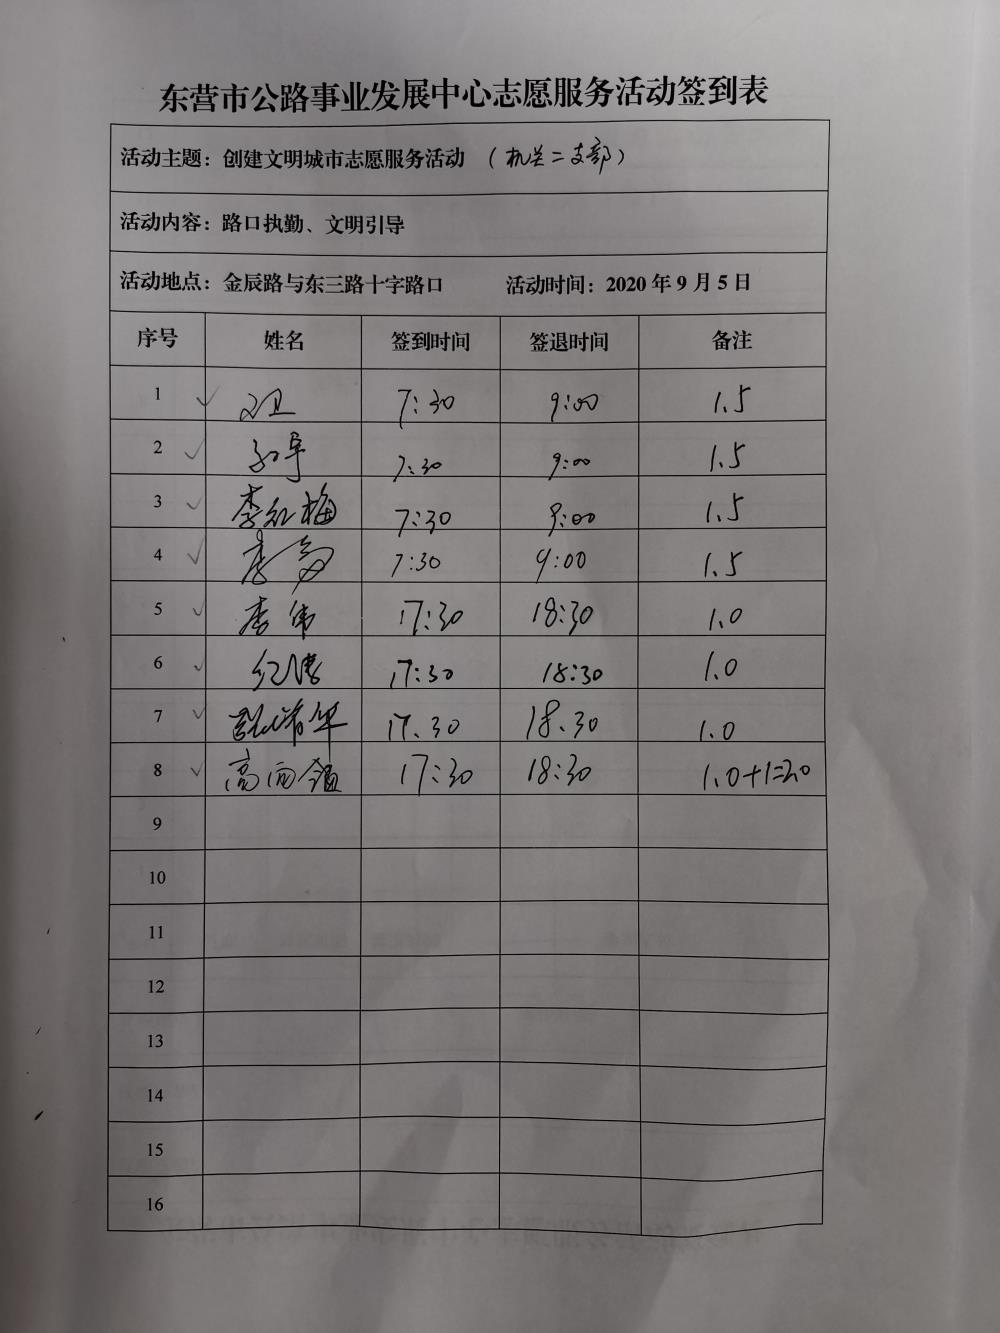 东营市公路事业发展中心志愿服务活动签到表
活动主题：创建文明城市志愿服务活动 （机关二支部）
活动内容：路口执勤、文明引导
活动地点：金辰路与东三路十字路口 活动时间：2020年9月5日
序号 姓名 签到时间 签退时间 备注
1 7:30 9:00 1.5
2 7:30 9:00 1.5
3 李红梅 7:30 9:00 1.5
4 李 7:30 9:00 1.5
5 李伟 17:30 18:30 1.0
6 17:30 18:30 1.0
7 17.30 18.30 1.0
8 高雨领 17:30 18:30 1.0+1=2.0
9
10
11
12
13
14
15
16